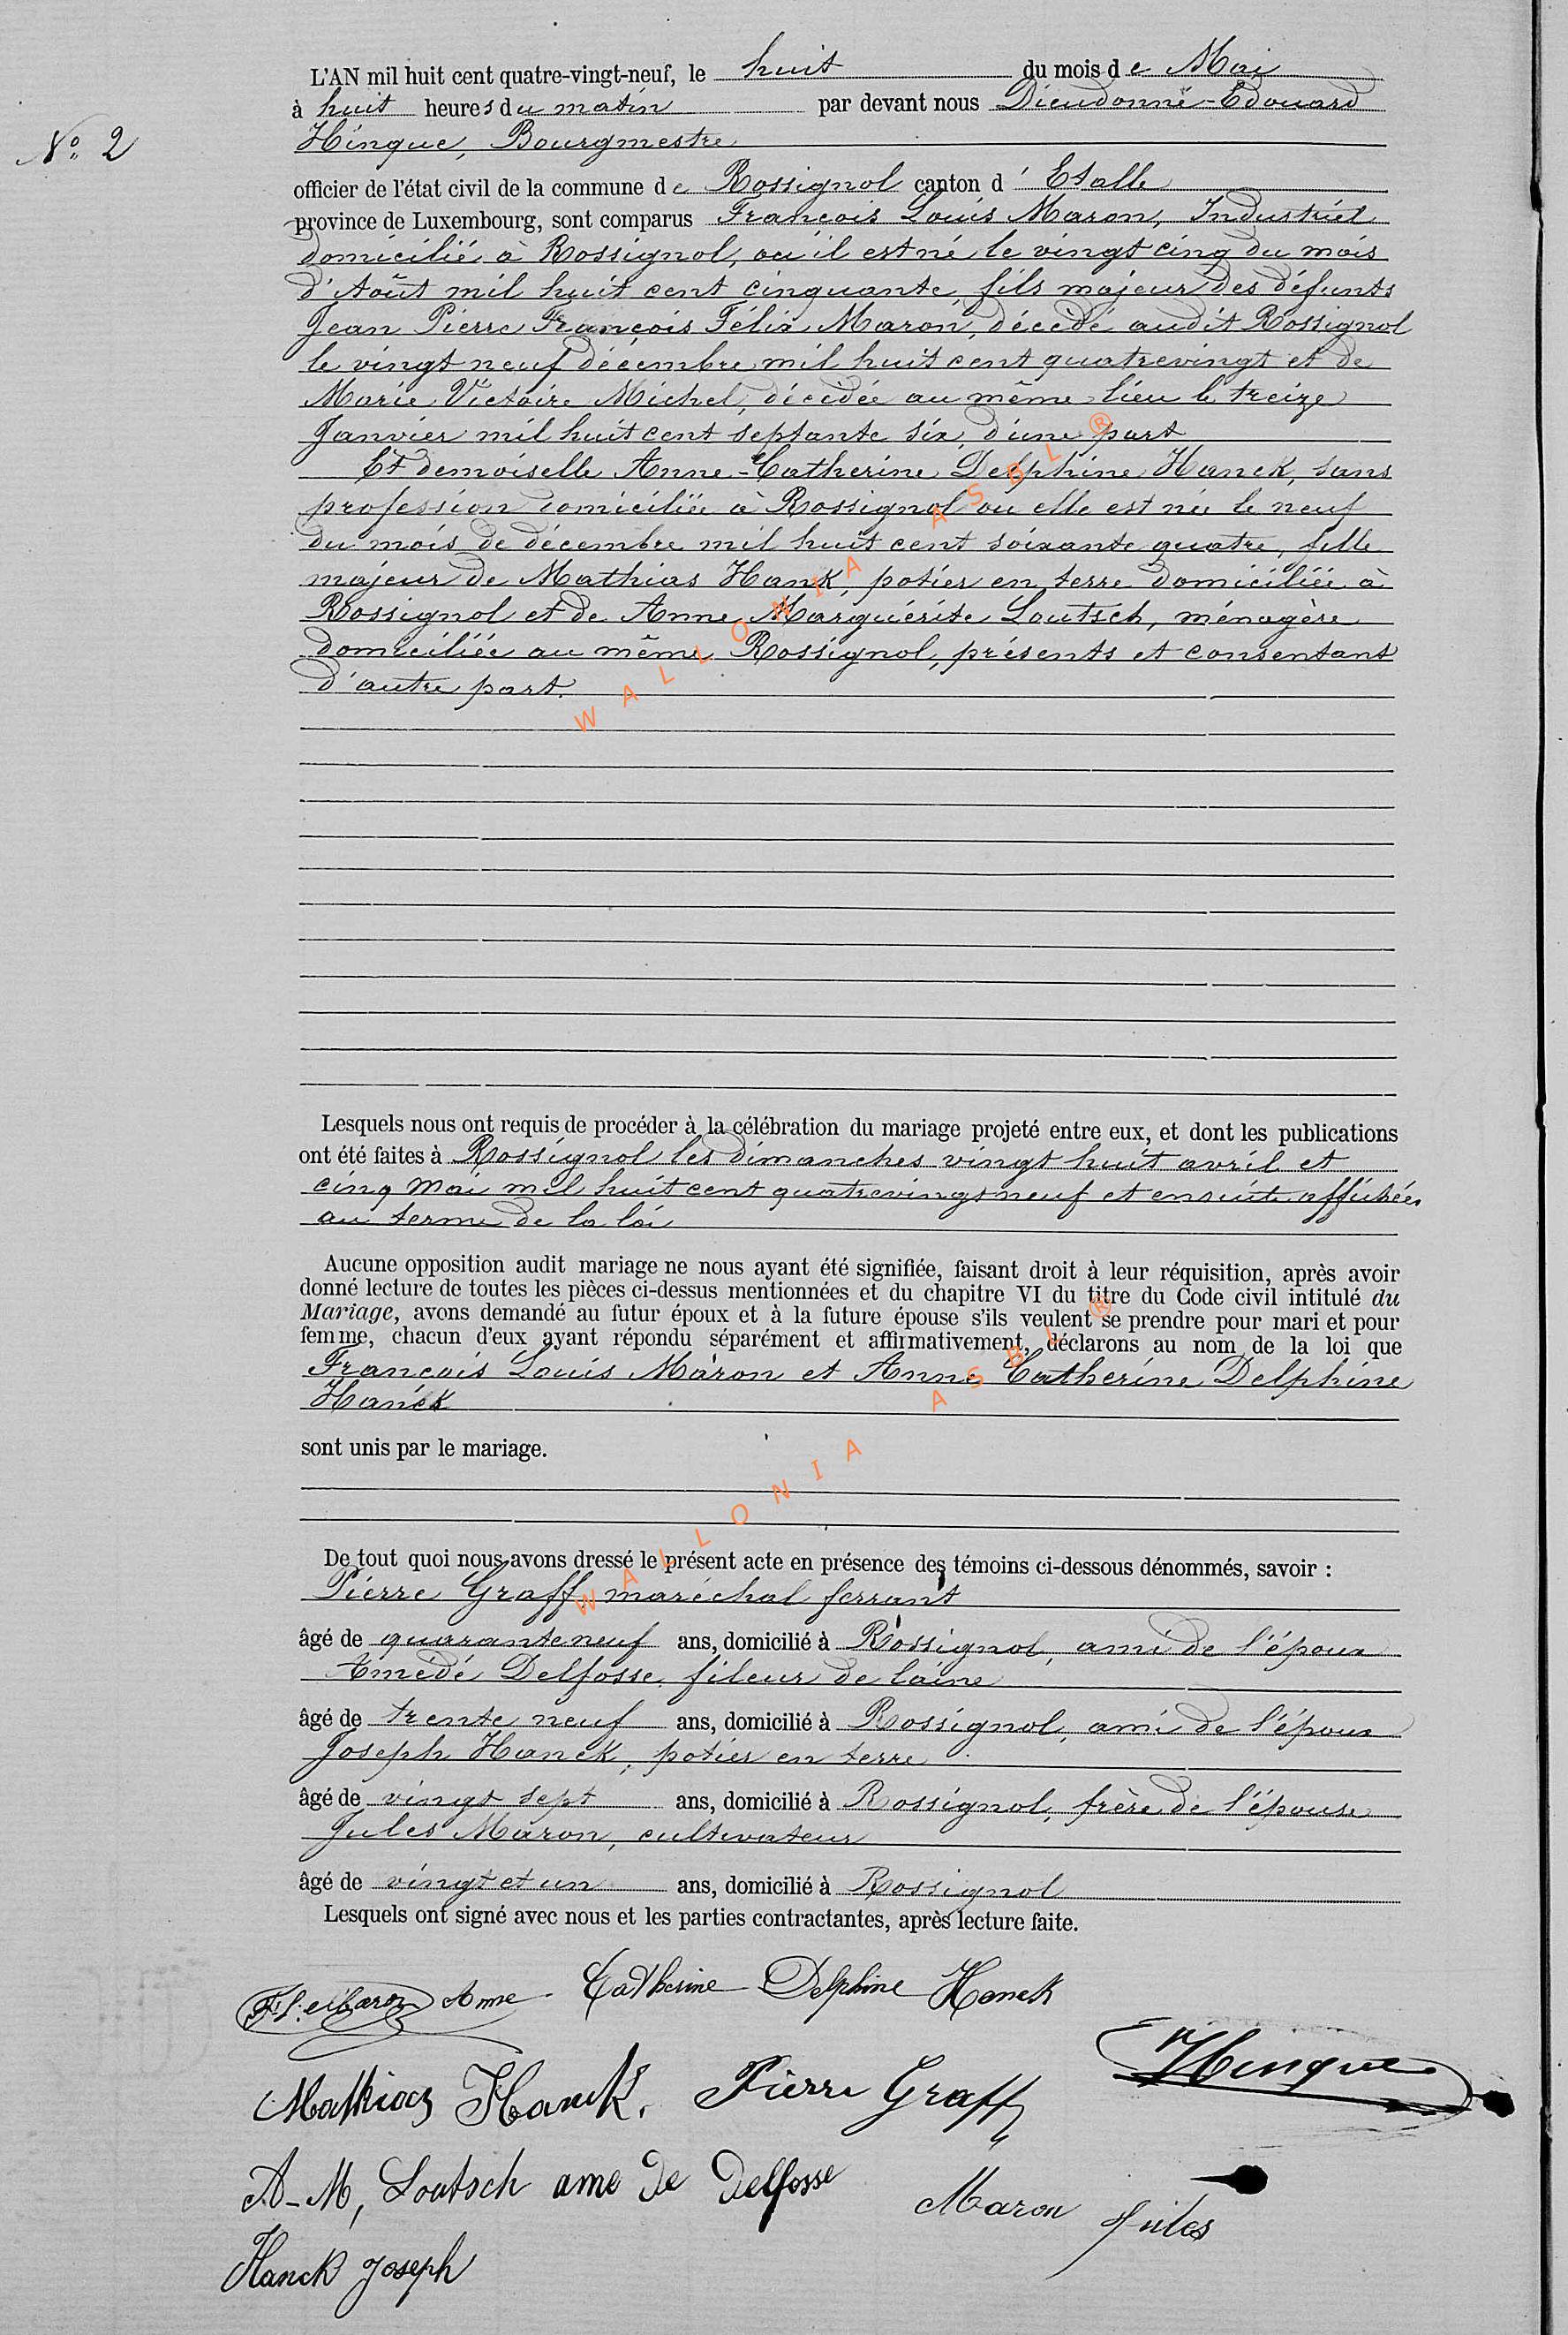 L'AN mil huit cent quatre-vingt-neuf, le huit du mois de Mai
à huit heures du matin par devant nous Dieudonné-Edouard
Nº 2
Hinque, Bourgmestre
officier de l'état civil de la commune de Rossignol canton d' Etalle
province de Luxembourg, sont comparus François Louis Maron, Industriel
domicilié à Rossignol, ou il est né le vingt cinq du mois
d'Août mil huit cent cinquante fils majeur des défunts
Jean Pierre François Félix Maron, décédé audit Rossignol
le vingt neuf décembre mil huit cent quatrevingt et de
Marie Victoire Michel, décédée au même lieu le treize
Janvier mil huit cent septante six, d'une part
Et demoiselle Anne-Catherine Delphine Hanck, sans
profession domiciliée à Rossignol ou elle est née le neuf
du mois de décembre mil huit cent soixante quatre, fille
majeur de Mathias Hank, potier en terre domiciliée à
Rossignol et de Anne Marguérite Loutsch, ménagère
domiciliée au même Rossignol, présents et consentant
d'autre part.
WALLONIA ASBL ®
Lesquels nous ont requis de procéder à la célébration du mariage projeté entre eux, et dont les publications
ont été faites à Rossignol les dimanches vingt huit avril et
cinq Mai mil huit cent quatrevingt neuf et ensuite affichées
au terme de la loi
Aucune opposition audit mariage ne nous ayant été signifiée, faisant droit à leur réquisition, après avoir
donné lecture de toutes les pièces ci-dessus mentionnées et du chapitre VI du titre du Code civil intitulé du
Mariage, avons demandé au futur époux et à la future épouse s'ils veulent se prendre pour mari et pour
femme, chacun d'eux ayant répondu séparément et affirmativement, déclarons au nom de la loi que
François Louis Maron et Anne Catherine Delphine
Hanck
sont unis par le mariage.
WALLONIA ASBL ®
De tout quoi nous avons dressé le présent acte en présence des témoins ci-dessous dénommés, savoir :
Pierre Graff, maréchal ferrant
âgé de quarante neuf ans, domicilié à Rossignol, ami de l'époux
Amédé Delfosse, fileur de laine
âgé de trente neuf ans, domicilié à Rossignol, ami de l'époux
Joseph Hanck, potier en terre
âgé de vingt sept ans, domicilié à Rossignol, frère de l'épouse
Jules Maron, cultivateur
âgé de vingt et un ans, domicilié à Rossignol
Lesquels ont signé avec nous et les parties contractantes, après lecture faite.
F. L. Maron Anne Catherine Delphine Hanck
Hinque
Mathias Hanck. Pierre Graff
A-M, Loutsch ame de Delfosse
Maron Jules
Hanck Joseph